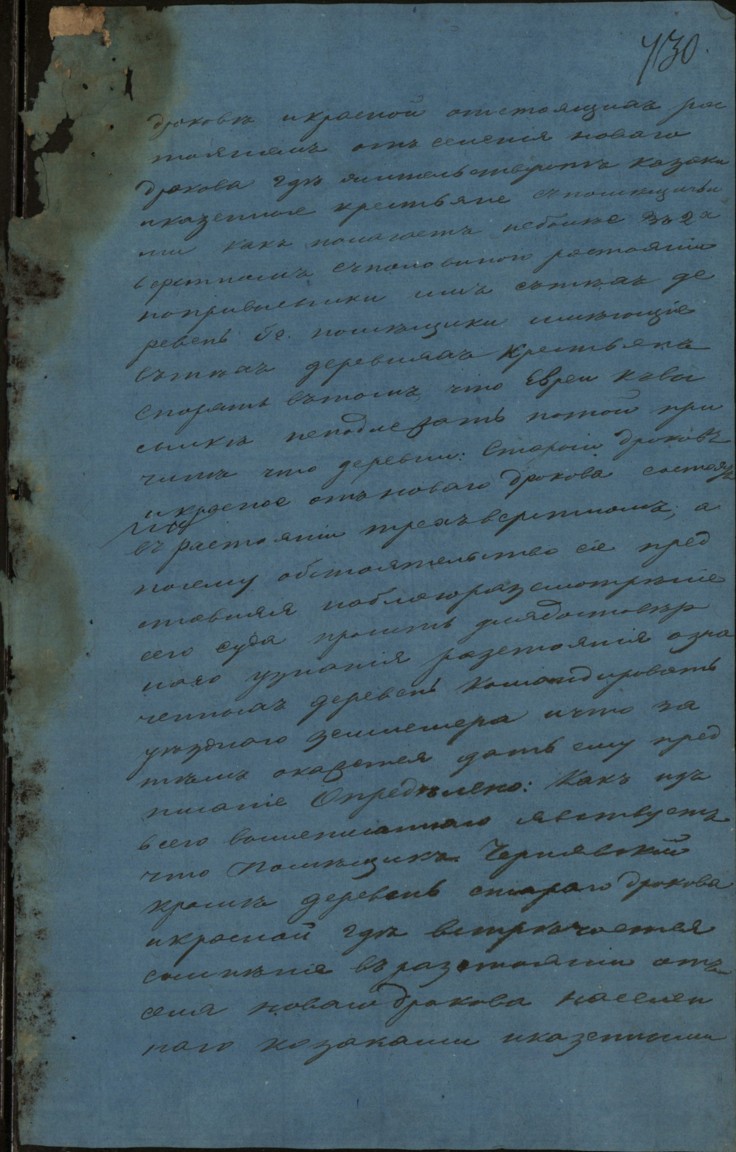 730.
дроковъ и красной отстоящихъ рас
тояніемъ отъ селенія новаго
дрокова гдѣ жительствуютъ казаки
иказенные крестьяне съ помещичьи
ми какъ полагаетъ неболше въ 2хъ
верстномъ споловиною ростояніи
поприволжники имъ сътѣхъ де
ревень бо помѣщики имѣющіе
вътѣхъ деревняхъ крестьянъ
спорятъ вътомъ, что Евреи квы
сылкѣ неподлежатъ потой при
чинѣ что деревни: Старой дроковъ
икрасное отъ новаго дрокова состоятъ
въ растояніи трехъ верстномъ, а
посему обстоятельство сіе пред
ставляя наблагоразсмотрѣніе
сего суда проситъ длядостовѣр
наго узнанія разстоянія озна
ченныхъ деревень командировать
уѣзднаго землемера ичто за
тѣмъ окажется дать ему пред
писаніе Опредѣлено: Какъ изъ
всего вышеписаннаго явствуетъ
что Помѣщикъ Чернявскій
кромѣ деревень стараго дрокова
икрасной гдѣ встрѣчается
сомнѣніе въ разстояніи отъ
села новаго дрокова населен
наго козаками иказенными